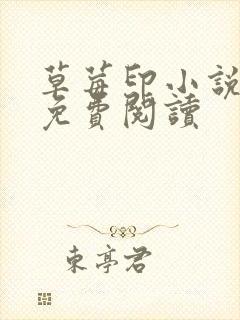 草莓印小說
免費閱讀
東亭君